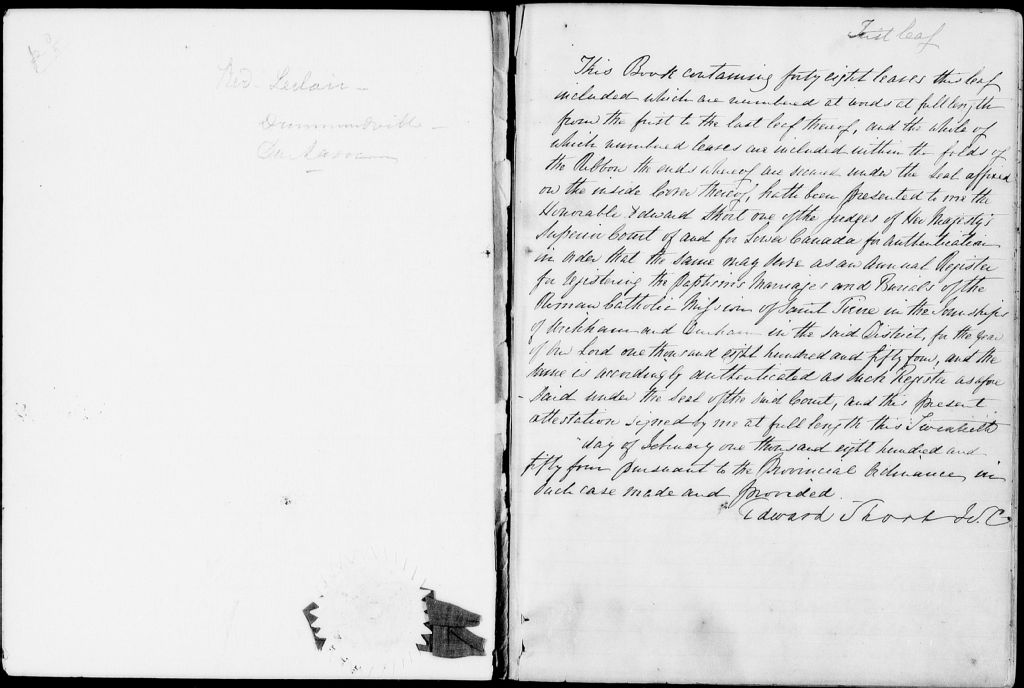 Rev. Leclair
Drummondville
First leaf
This Book containing forty eight leaves this leaf
included which are numbered at words at full length
from the first to the last leaf thereof, and the whole of
which numbered leaves are included within the folds of
the Ribbon the ends whereof are secured under the Seal affixed
on the inside Cover thereof, hath been presented to me the
Honorable Edward Short one of the judges of Her Majesty's
Superior Court of and for Lower Canada for authentication
in order that the same may serve as an annual Register
for registering the Baptisms Marriages and Burials of the
Roman Catholic Mission of Saint Pierre in the Townships
of Wickham and Durham in the said District, for the year
of Our Lord one thousand eight hundred and fifty four, and the
same is accordingly authenticated as such Register as afore
said under the Seal of the said Court, and this present
attestation signed by me at full length this Twentieth
day of February one thousand eight hundred and
fifty four pursuant to the Provincial Ordinance in
such case made and provided.
Edward Short J.S.C.